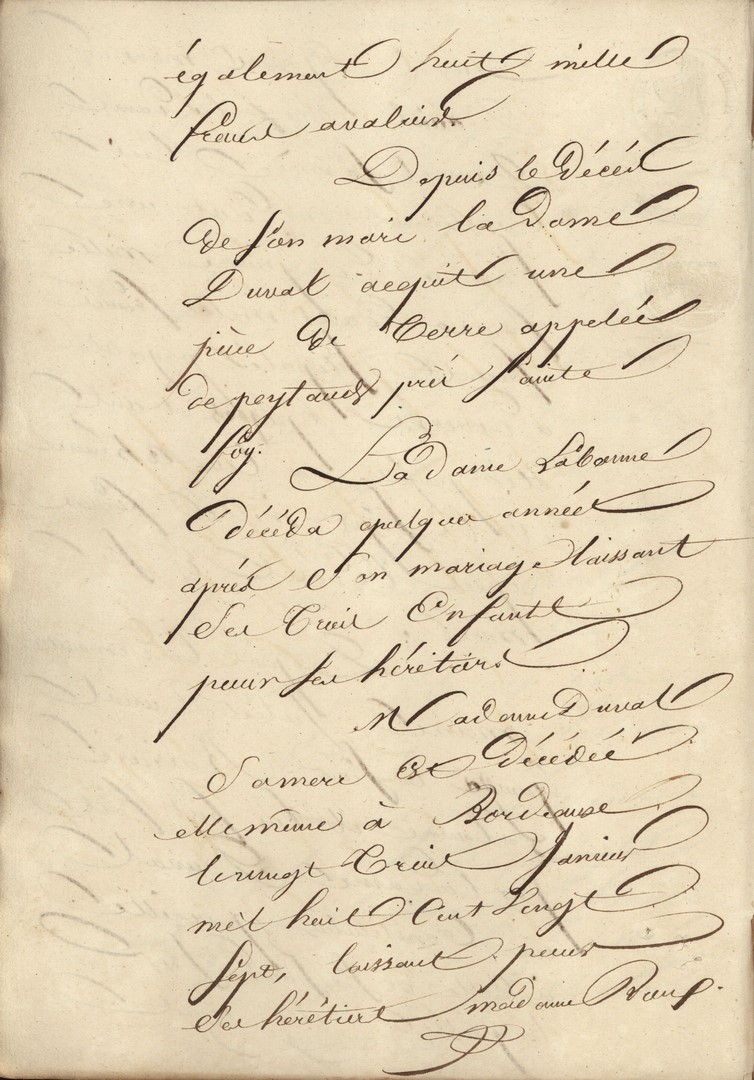 également huit mille
francs avaluird.
Depuis le Décès
De son mari la Dame
Duval acquit une
pièce De Terre appelée
de peytaud près Sainte
foy. La Dame Laborme
Décéda quelques années
après Son mariage laissant
Ses Trois Enfants
pour Ses héritiers
Madame Duval
Sa mere Est Décédée
elle même à Bordeaux
le vingt Trois Janvier
mil huit Cent Vingt
Sept, laissant pour
Ses héritiers madame Roux.